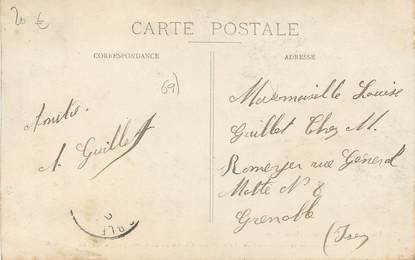 20 €
CARTE POSTALE
CORRESPONDANCE
ADRESSE
69)
Amitiés.
A. Guillet
Mademoiselle Louise
Guillet Chez M.
rue Général
Motte N° 8
Grenoble
(Isère